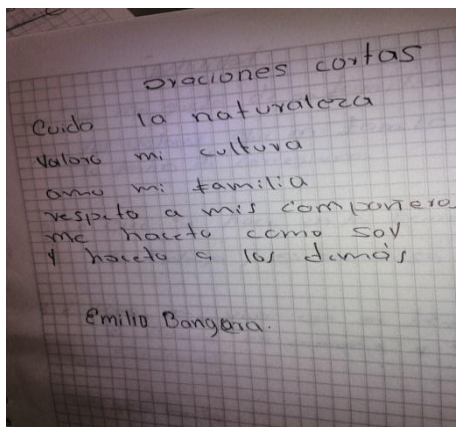 oraciones cortas
Cuido la naturaleza
Valoro mi cultura
amo mi familia
respeto a mis compañero
me hoceto como soy
Y hoceto a los demás
Emilio Bangera.